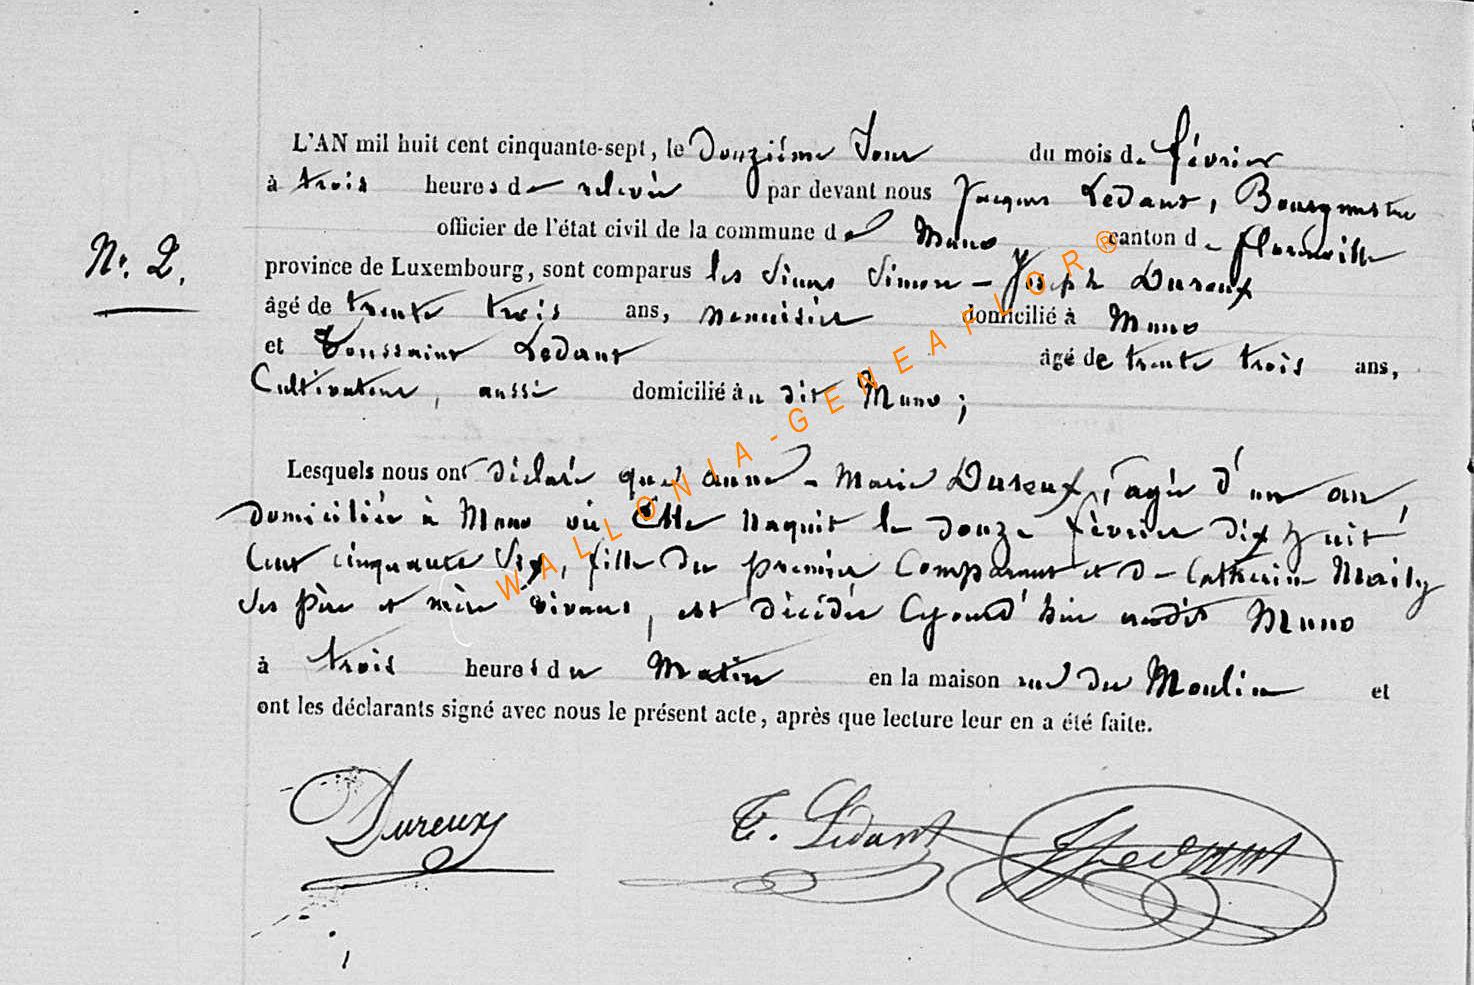 L'AN mil huit cent cinquante-sept, le Douzième Jour du mois de février
à trois heures de relevée par devant nous Jacques Ledant, Bourgmestre
officier de l'état civil de la commune de Muno canton de florenville
N°. 2.
province de Luxembourg, sont comparus les Sieurs Simon - Joseph Dureux
âgé de trente trois ans, menuisier domicilié à Muno
et Toussaint Ledant âgé de trente trois ans,
Cultivateur, aussi domicilié au dit Muno;
Lesquels nous ont déclaré que anne - Marie Dureux, agée d'un an,
domiciliée à Muno où Elle naquit le douze février dix huit
Cent cinquante Six, fille du premier Comparant et de Catherine
Ses père et mère vivans, est décédée Cejourd'hui audit Muno
à trois heures du Matin en la maison rue du Moulin et
ont les déclarants signé avec nous le présent acte, après que lecture leur en a été faite.
Dureux T. Ledant JLedant
WALLONIA-GENEAFLOR®